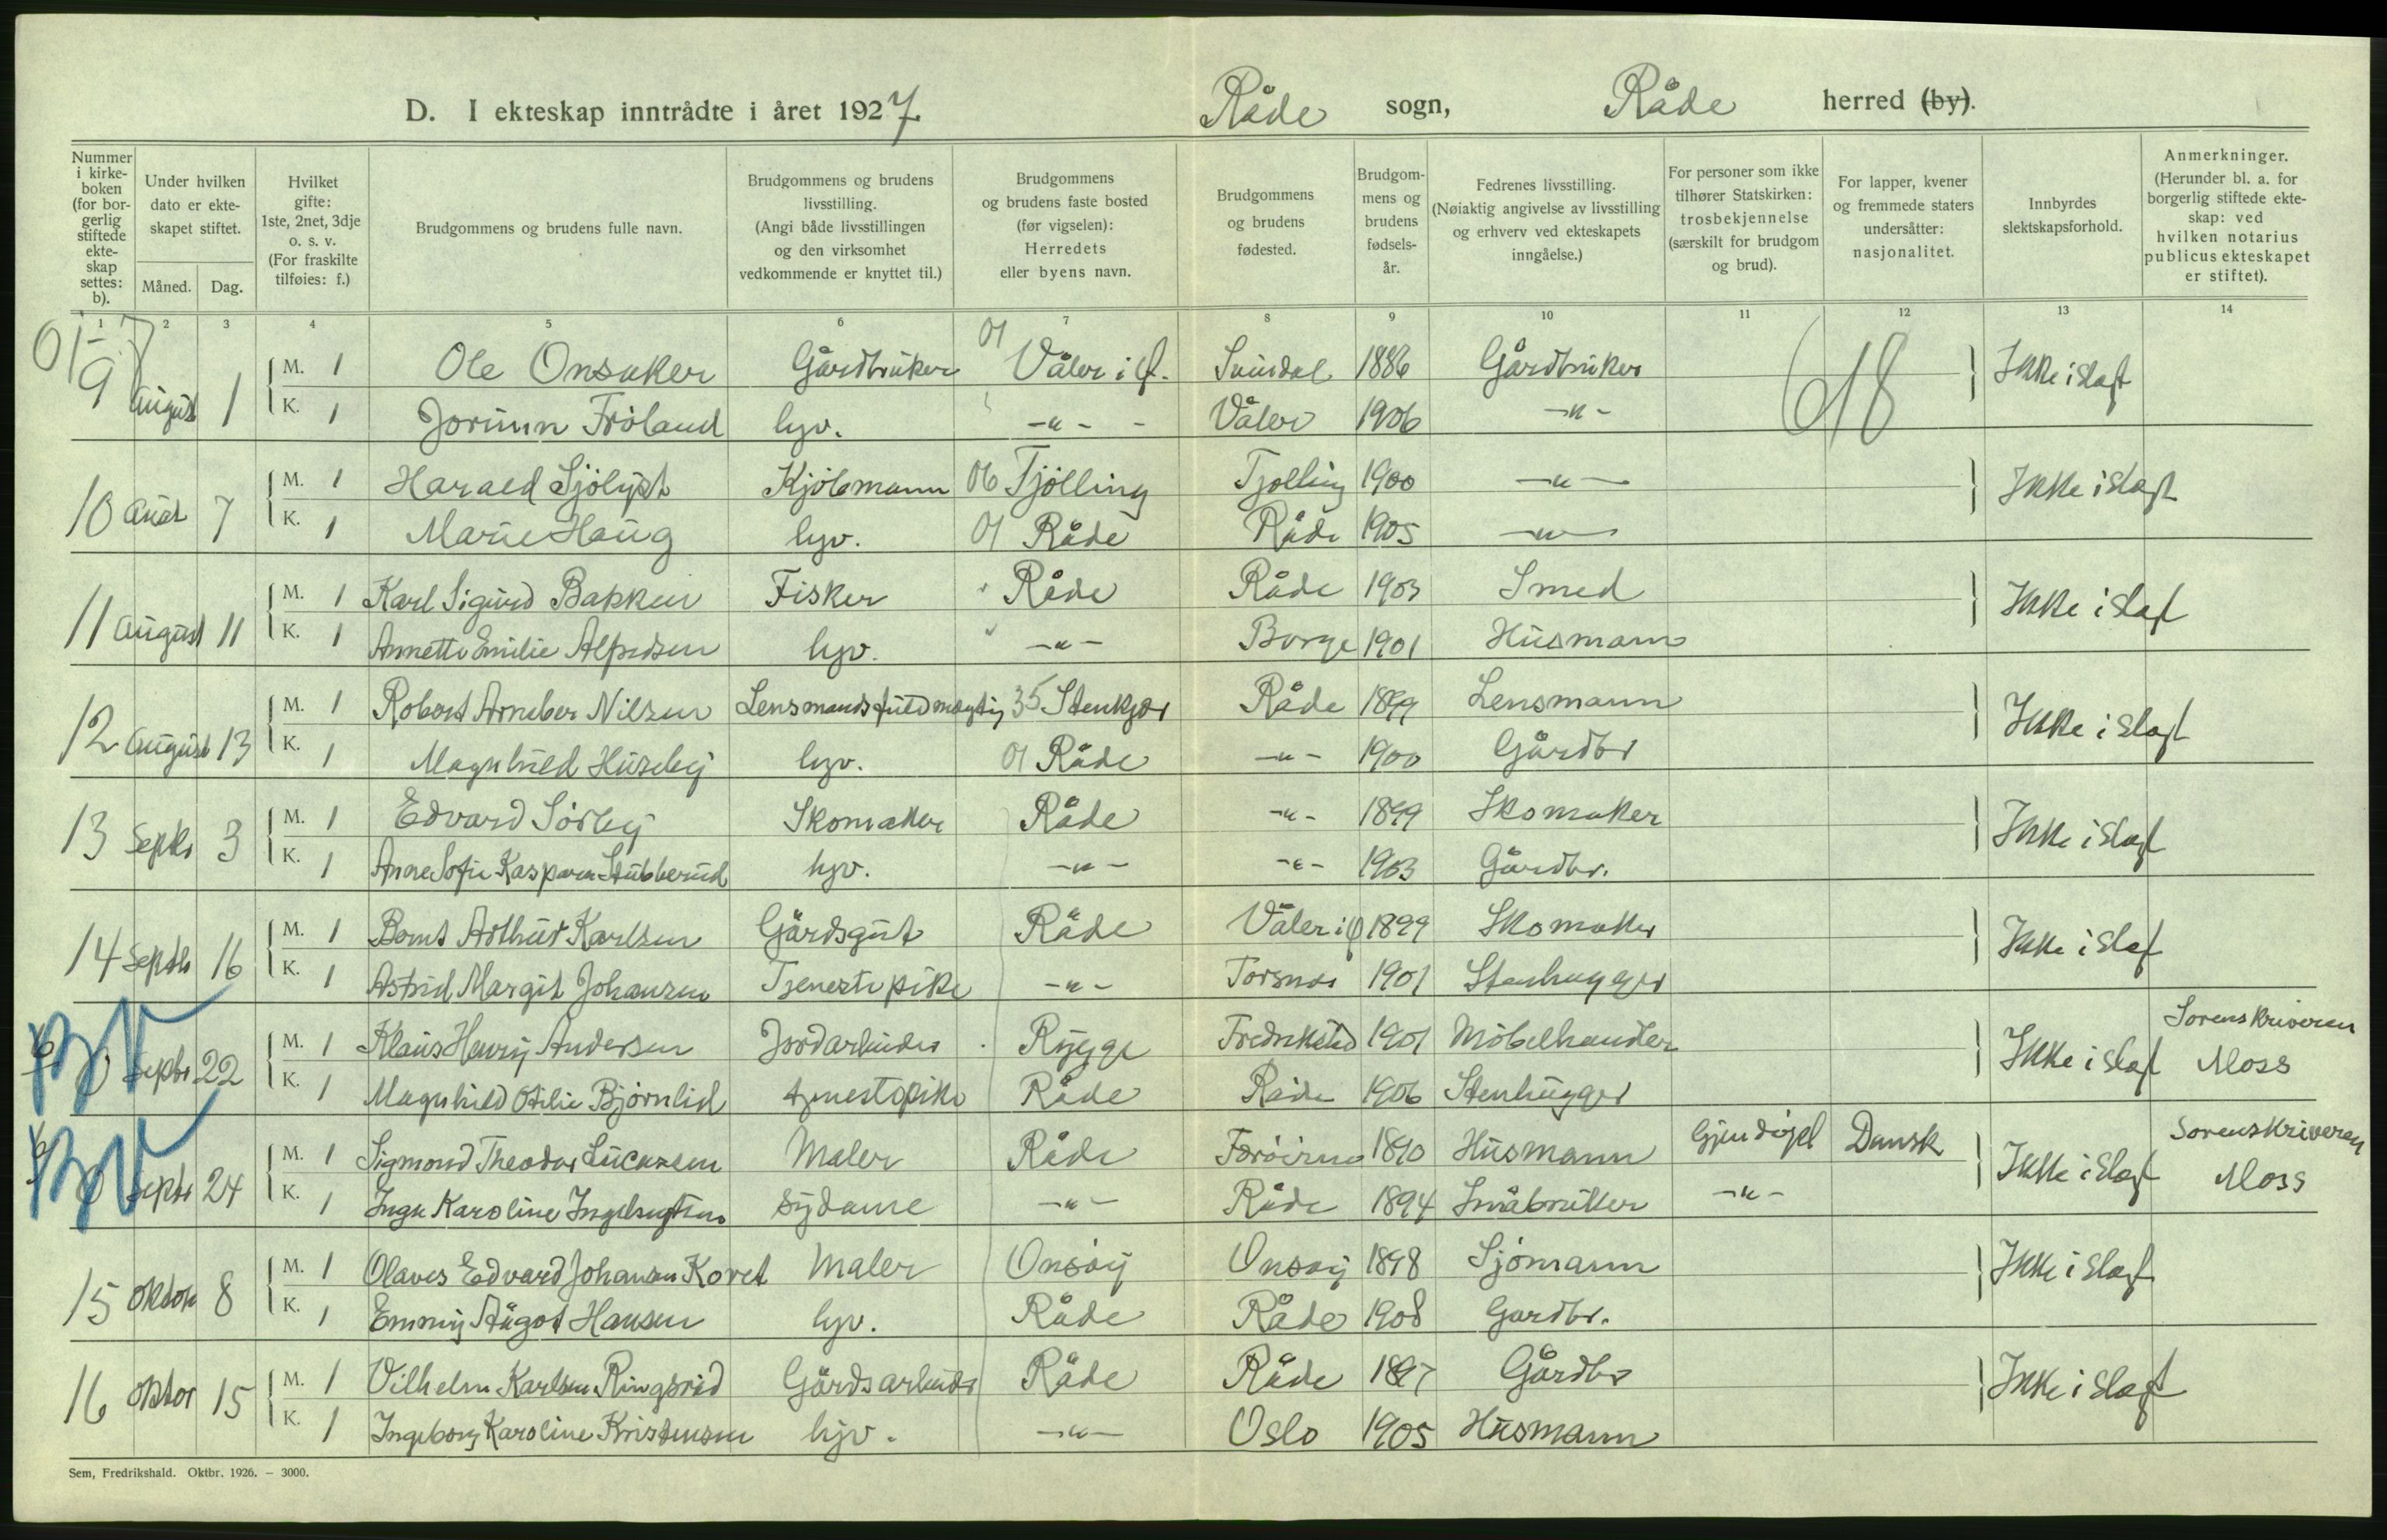 D. I ekteskap inntrådte i året 1927. Råde sogn, Råde herred (by).
Nummer i kirke-boken (for bor-gerlig stiftede ekte-skap settes: b).
Under hvilken dato er ekte-skapet stiftet.
Måned. Dag.
Hvilket gifte: 1ste, 2net, 3dje o. s. v. (For fraskilte tilføies: f.)
Brudgommens og brudens fulle navn.
Brudgommens og brudens livsstilling. (Angi både livsstillingen og den virksomhet vedkommende er knyttet til.)
Brudgommens og brudens faste bosted (før vigselen): Herredets eller byens navn.
Brudgommens og brudens fødested.
Brudgom-mens og brudens fødsels-år.
Fedrenes livsstilling. (Nøiaktig angivelse av livsstilling og erhverv ved ekteskapets inngåelse.)
For personer som ikke tilhører Statskirken: trosbekjennelse (særskilt for brudgom og brud).
For lapper, kvener og fremmede staters undersåtter: nasjonalitet.
Innbyrdes slektskapsforhold.
Anmerkninger. (Herunder bl. a. for borgerlig stiftede ekte-skap: ved hvilken notarius publicus ekteskapet er stiftet).
1 2 3 4 5 6 7 8 9 10 11 12 13 14
9 August 1 M. 1 Ole Onsaker Gårdbruker 01 Våler i Ø. Svindal 1886 Gårdbruker 618 Ikke i slagt
K. 1 Jorunn Fröland hjv. -"- Våler 1906 -"-
10 Aust 7 M. 1 Harald Sjölyst Kjöbmann 06 Tjölling Tjölling 1900 -"- Ikke i slagt
K. 1 Marie Haug hjv. 01 Råde Råde 1905 -"-
11 August 11 M. 1 Karl Sigurd Bakken Fisker Råde Råde 1903 Smed Ikke i slagt
K. 1 Annette Emilie Alfredsen hjv. -"- Borge 1901 Husmann
12 August 13 M. 1 Robert Arneber Nilsen Lensmandsfuldmegtig 35 Stenkjær Råde 1899 Lensmann Ikke i slagt
K. 1 Magnhild Huseby hjv. 01 Råde -"- 1900 Gårdbr
13 Septbr 3 M. 1 Edvard Sörby Skomaker Råde -"- 1899 Skomaker Ikke i slagt
K. 1 Anne Sofie Kaspara Stubberud hjv. -"- -"- 1903 Gårdbr.
14 Septbr 16 M. 1 Bernt Arthur Karlsen Gårdsgut Råde Våler i Ø 1899 Skomaker Ikke i slagt
K. 1 Astrid Margit Johansen Tjenestepike -"- Torsnes 1901 Stenhugger
b Septbr 22 M. 1 Klaus Henry Andersen Jordarbeider Rygge Fredrikstad 1901 Möbelhandler Ikke i slagt Sorenskriveren
K. 1 Magnhild Otilie Björnlid tjenestepike Råde Råde 1906 Stenhugger Moss
b Septbr 24 M. 1 Sigmond Theodor Lucasen Maler Råde Færöerne 1890 Husmann Gjendöpt Dansk Ikke i slagt Sorenskriveren
K. 1 Inga Karoline Ingebrigtsen Sydame -"- Råde 1894 Småbruker -"- Moss
15 Oktbr 8 M. 1 Olaves Edvard Johansen Koret Maler Onsöy Onsöy 1898 Sjömann Ikke i slagt
K. 1 Emmy Aagot Hansen hjv. Råde Råde 1908 Gardbr.
16 Oktbr 15 M. 1 Vilhelm Karlsen Ringsrød Gårdsarbeider Råde Råde 1897 Gårdbr Ikke i slagt
K. 1 Ingeborg Karoline Kristensen hjv. -"- Oslo 1905 Husmann
Sem, Fredrikshald. Oktbr. 1926. – 3000.